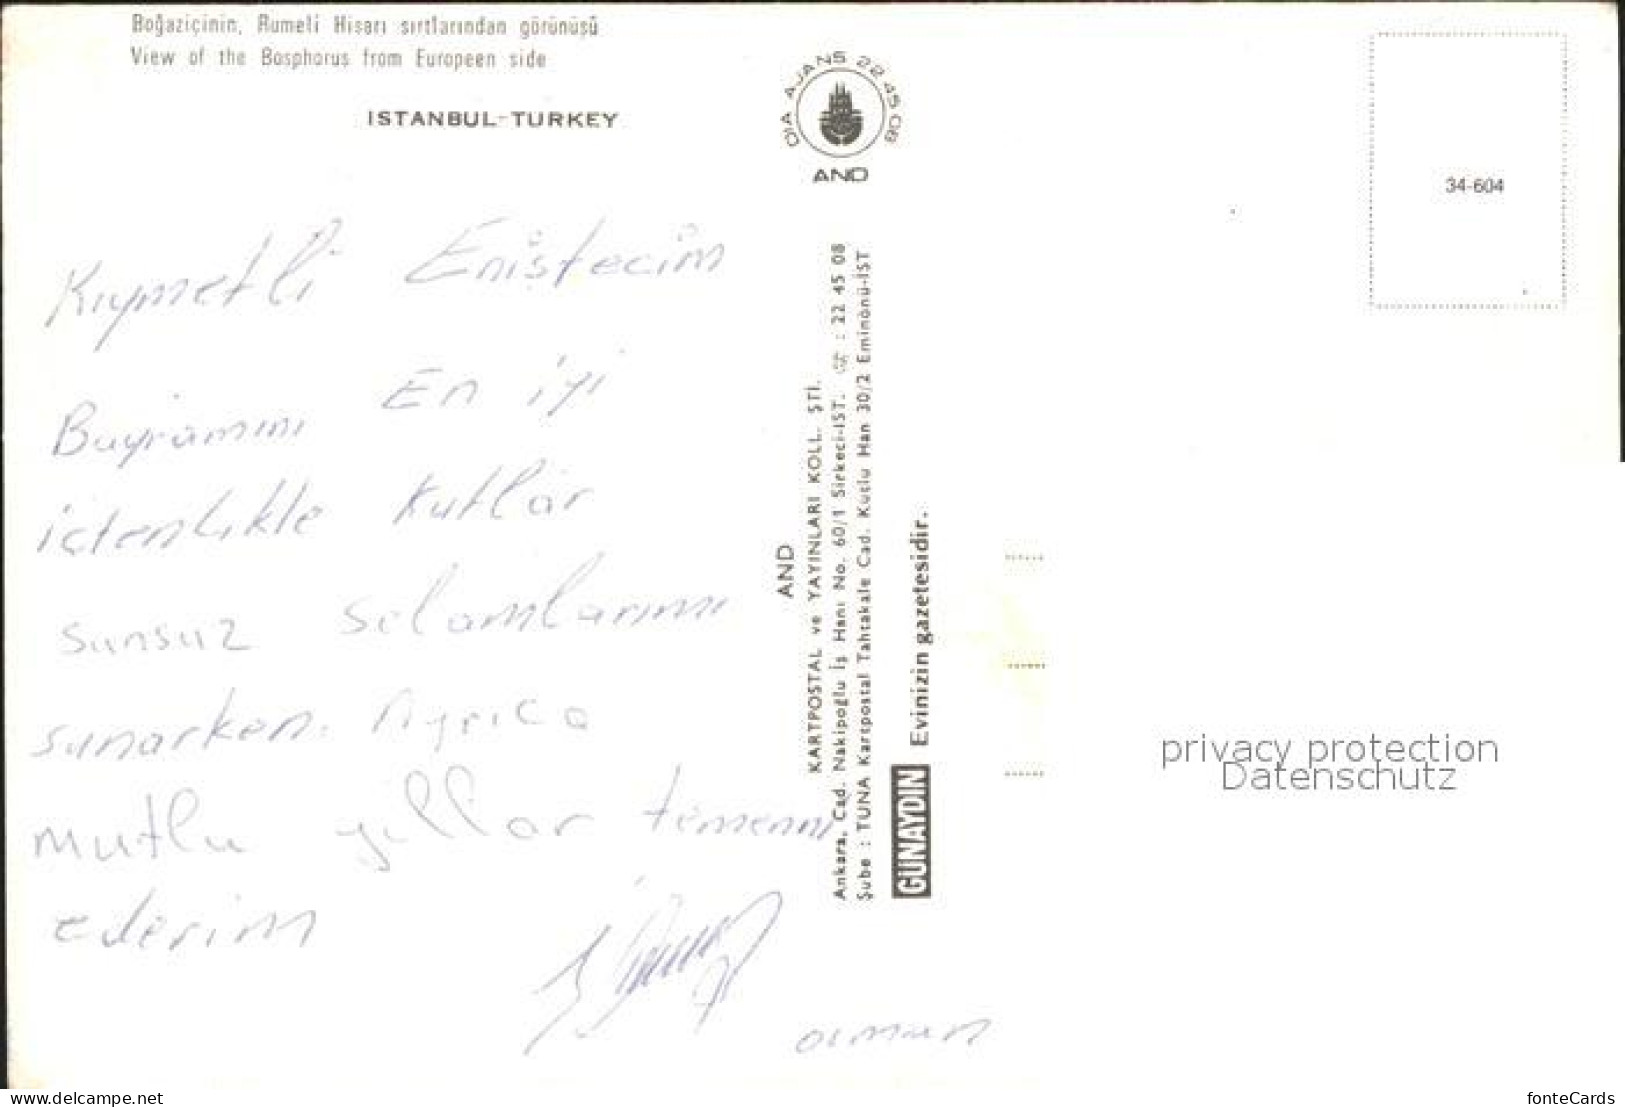 Boğaziçinin, Rumeli Hisarı sırtlarından görünüşü
View of the Bosphorus from Europeen side
ISTANBUL-TURKEY
DIA AJANS 22 45 08
AND
34-604
Kıymetli Eniştecim
Bayramını En iyi
içtenlikle kutlar
sunsuz selamlarımı
sunarken. Ayrıca
mutlu yıllar temenni
ederim
AND
KARTPOSTAL ve YAYINLARI KOLL. ŞTİ.
Ankara, Cad. Nakipoğlu İş Hanı No. 60/1 Sirkeci-İST. : 22 45 08
Şube : TUNA Kartpostal Tahtakale Cad. Kutlu Han 30/2 Eminönü-İST
GÜNAYDIN Evinizin gazetesidir.
privacy protection
Datenschutz
www.delcampe.net
fonteCards